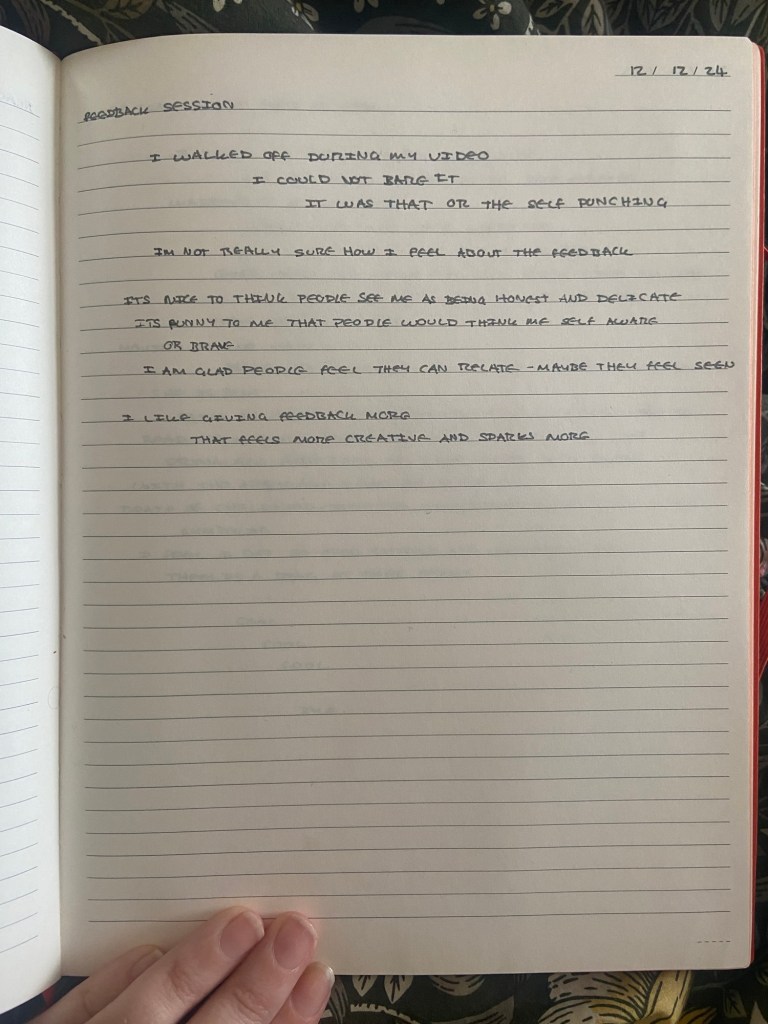 12 / 12 / 24
FEEDBACK SESSION
I WALKED OFF DURING MY VIDEO
I COULD NOT BARE IT
IT WAS THAT OR THE SELF PUNCHING
IM NOT REALLY SURE HOW I FEEL ABOUT THE FEEDBACK
ITS NICE TO THINK PEOPLE SEE ME AS BEING HONEST AND DELICATE
ITS FUNNY TO ME THAT PEOPLE WOULD THINK ME SELF AWARE
OR BRAVE
I AM GLAD PEOPLE FEEL THEY CAN RELATE - MAYBE THEY FEEL SEEN
I LIKE GIVING FEEDBACK MORE
THAT FEELS MORE CREATIVE AND SPARKS MORE